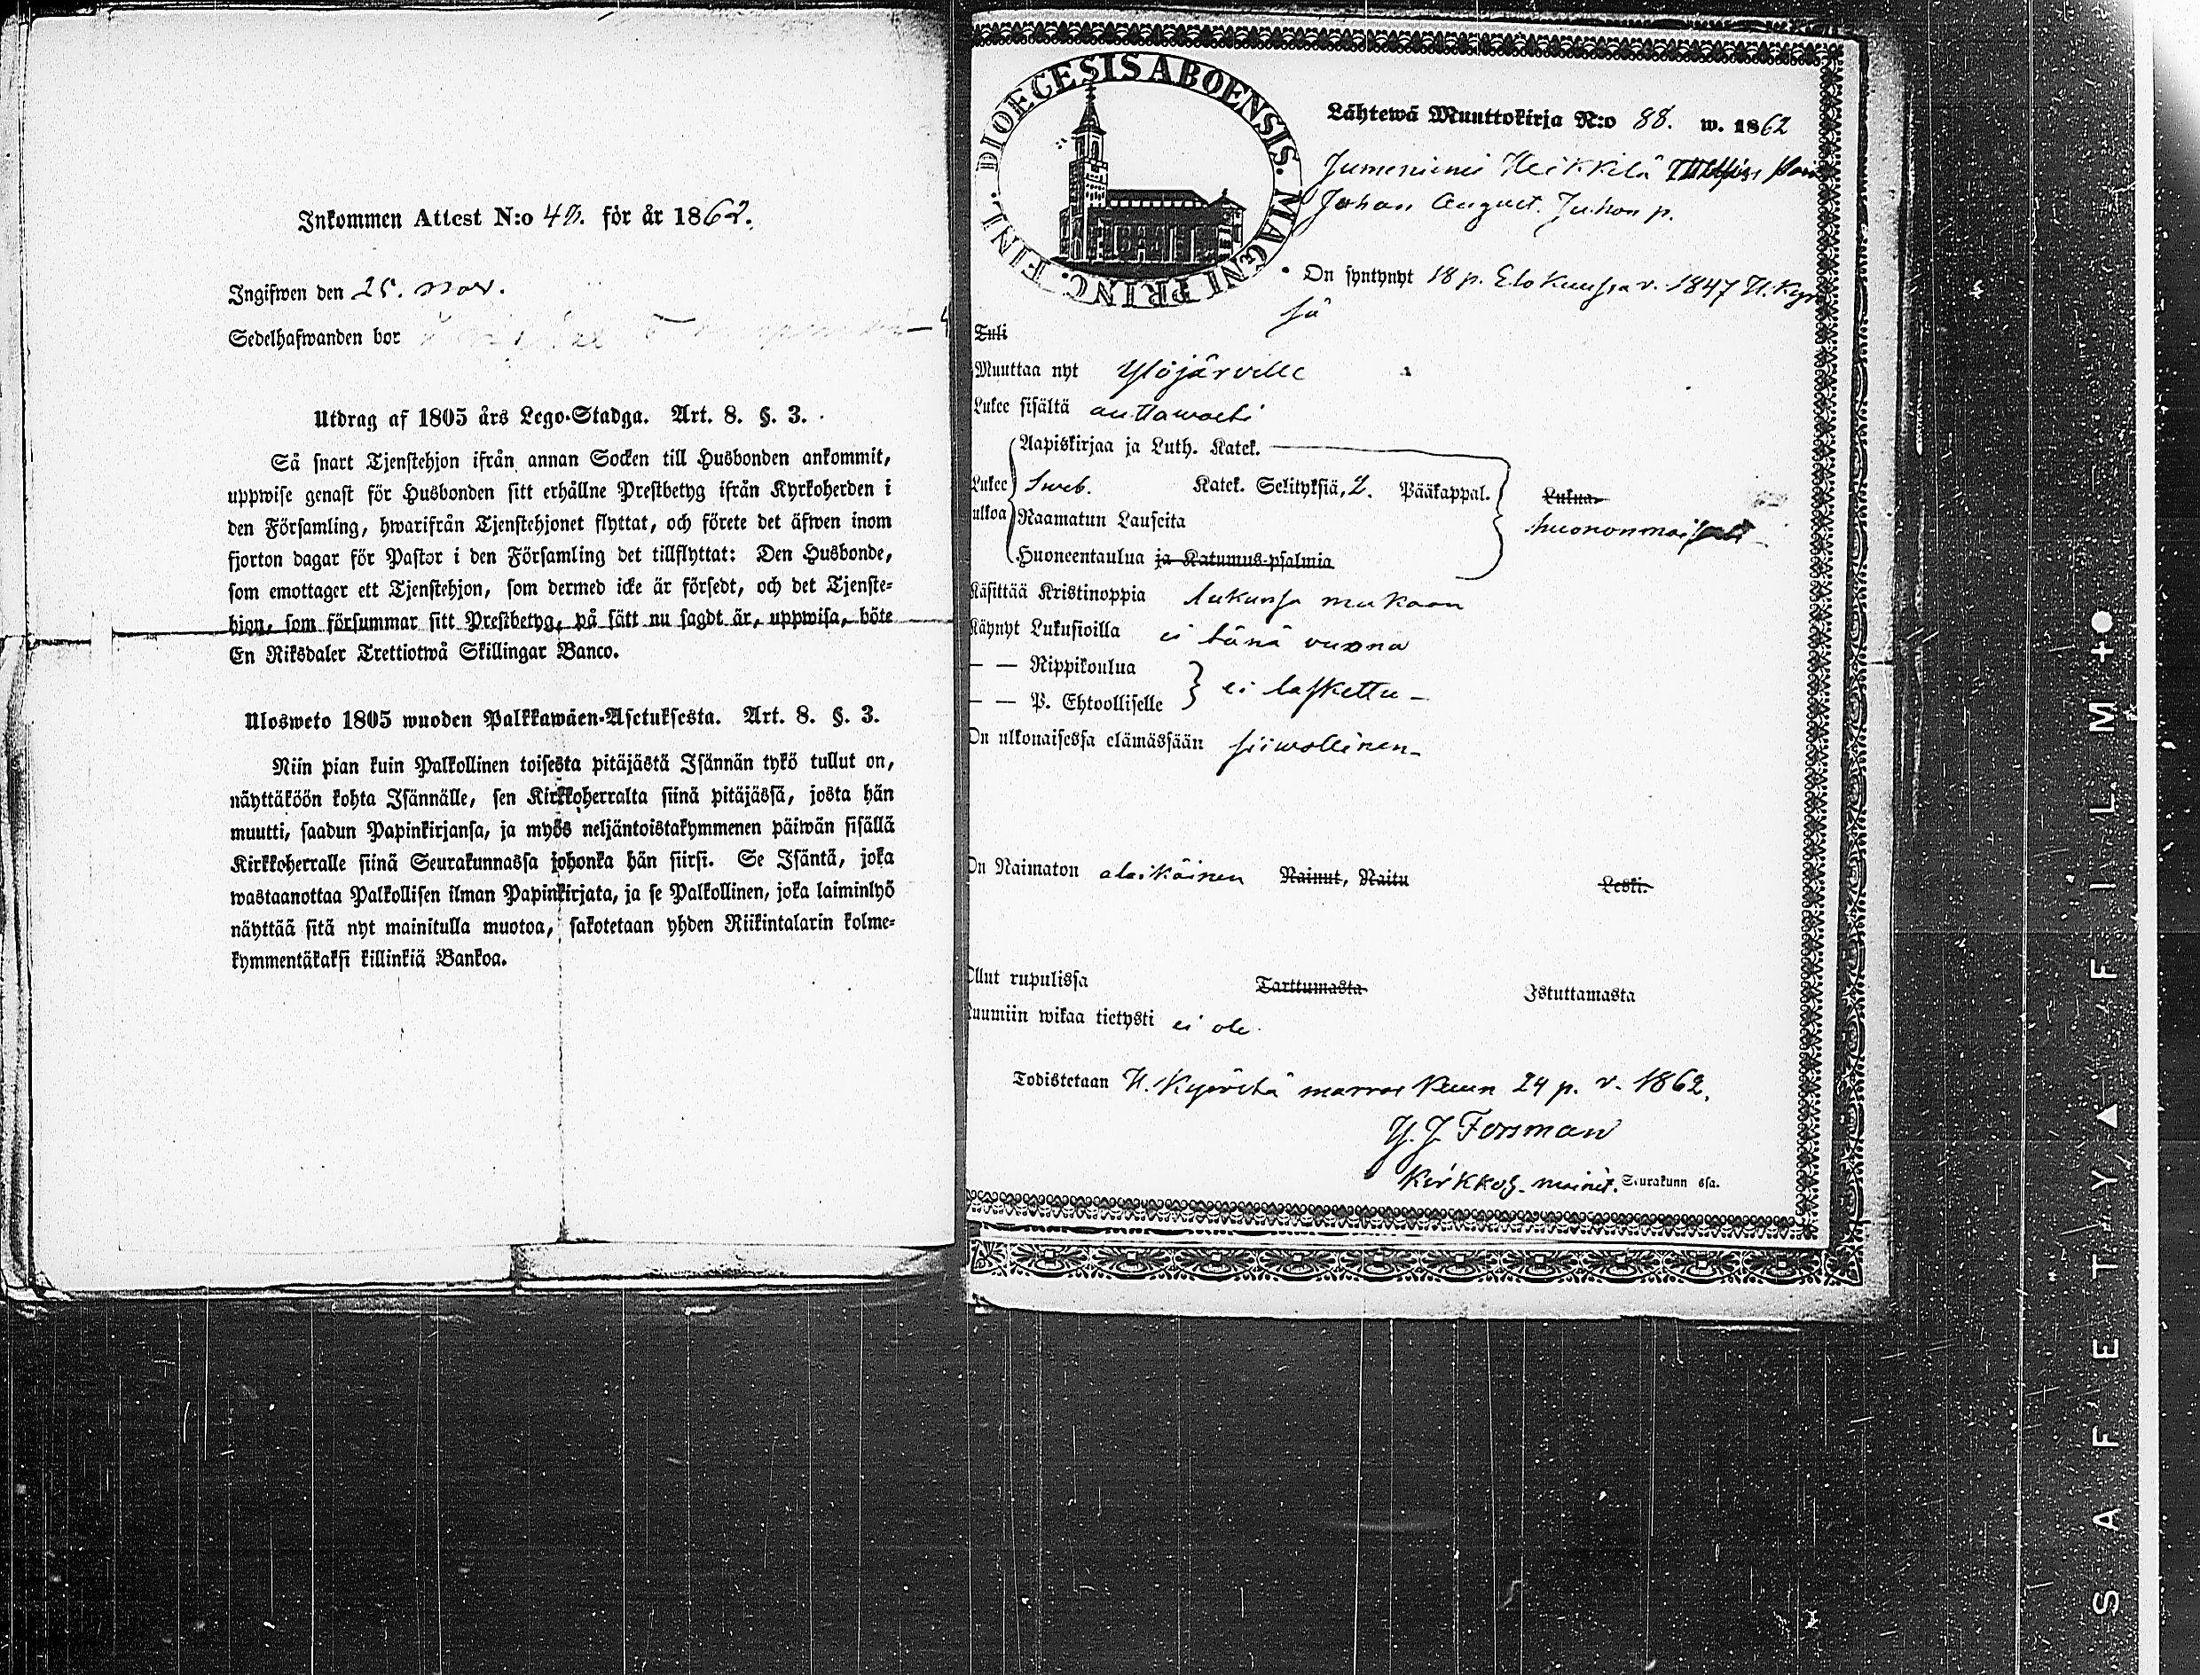 Inkommen Attest N:o 40. för år 1862.
Ingifwen den 25. nov.
Sedelhafwanden bor
Utdrag af 1805 års Lego-Stadga. Art. 8. §. 3.
Så snart Tjenstehjon ifrån annan Socken till Husbonden ankommit,
uppwise genast för Husbonden sitt erhållne Prestbetyg ifrån Kyrkoherden i
den Församling, hwarifrån Tjenstehjonet flyttat, och förete det äfwen inom
fjorton dagar för Pastor i den Församling det tillflyttat: Den Husbonde,
som emottager ett Tjenstehjon, som dermed icke är försedt, och det Tjenste-
hjon, som försummar sitt Prestbetyg, på sätt nu sagdt är, uppwisa, böte
En Riksdaler Trettiotwå Skillingar Banco.
Ulosweto 1805 wuoden Palkkawäen-Asetuksesta. Art. 8. §. 3.
Niin pian kuin Palkollinen toisesta pitäjästä Isännän tykö tullut on,
näyttäköön kohta Isännälle, sen Kirkkoherralta siinä pitäjässä, josta hän
muutti, saadun Papinkirjansa, ja myös neljäntoistakymmenen päiwän sisällä
Kirkkoherralle siinä Seurakunnassa johonka hän siirsi. Se Isäntä, joka
wastaanottaa Palkollisen ilman Papinkirjata, ja se Palkollinen, joka laiminlyö
näyttää sitä nyt mainitulla muotoa, sakotetaan yhden Riikintalarin kolme-
kymmentäkaksi killinkiä Bankoa.
DIOECESIS ABOENSIS. MAGNI PRINC. FINL.
Lähtewä Muuttokirja N:o 88. w. 1862
Jumeniemi Heikkilä
Johan August Juhon p.
On syntynyt 18 p. Elokuussa v. 1847 H. Kyrö
sä
Tuli
Muuttaa nyt Ylöjärville
Lukee sisältä auttawasti
Aapiskirjaa ja Luth. Katek.
Lukee Sweb. Katek. Selityksiä, 2. Pääkappal. Lukua
ulkoa Raamatun Lauseita huononmaisesti
Huoneentaulua ja Katumus-psalmia
Käsittää Kristinoppia lukunsa mukaan
Käynyt Lukusioilla ei tänä vuonna
— — Rippikoulua
— — P. Ehtoolliselle ei laskettu
On ulkonaisessa elämässään siiwollinen
On Naimaton alaikäinen Nainut, Naitu Leski.
Ollut rupulissa Tarttumasta Istuttamasta
Ruumiin wikaa tietysti ei ole
Todistetaan H. Kyröstä marras kuun 24 p. v. 1862.
Y. J. Forsman
Kirkkoh. mainit. Seurakunn ssa.
SAFETY ▲ FILM +●